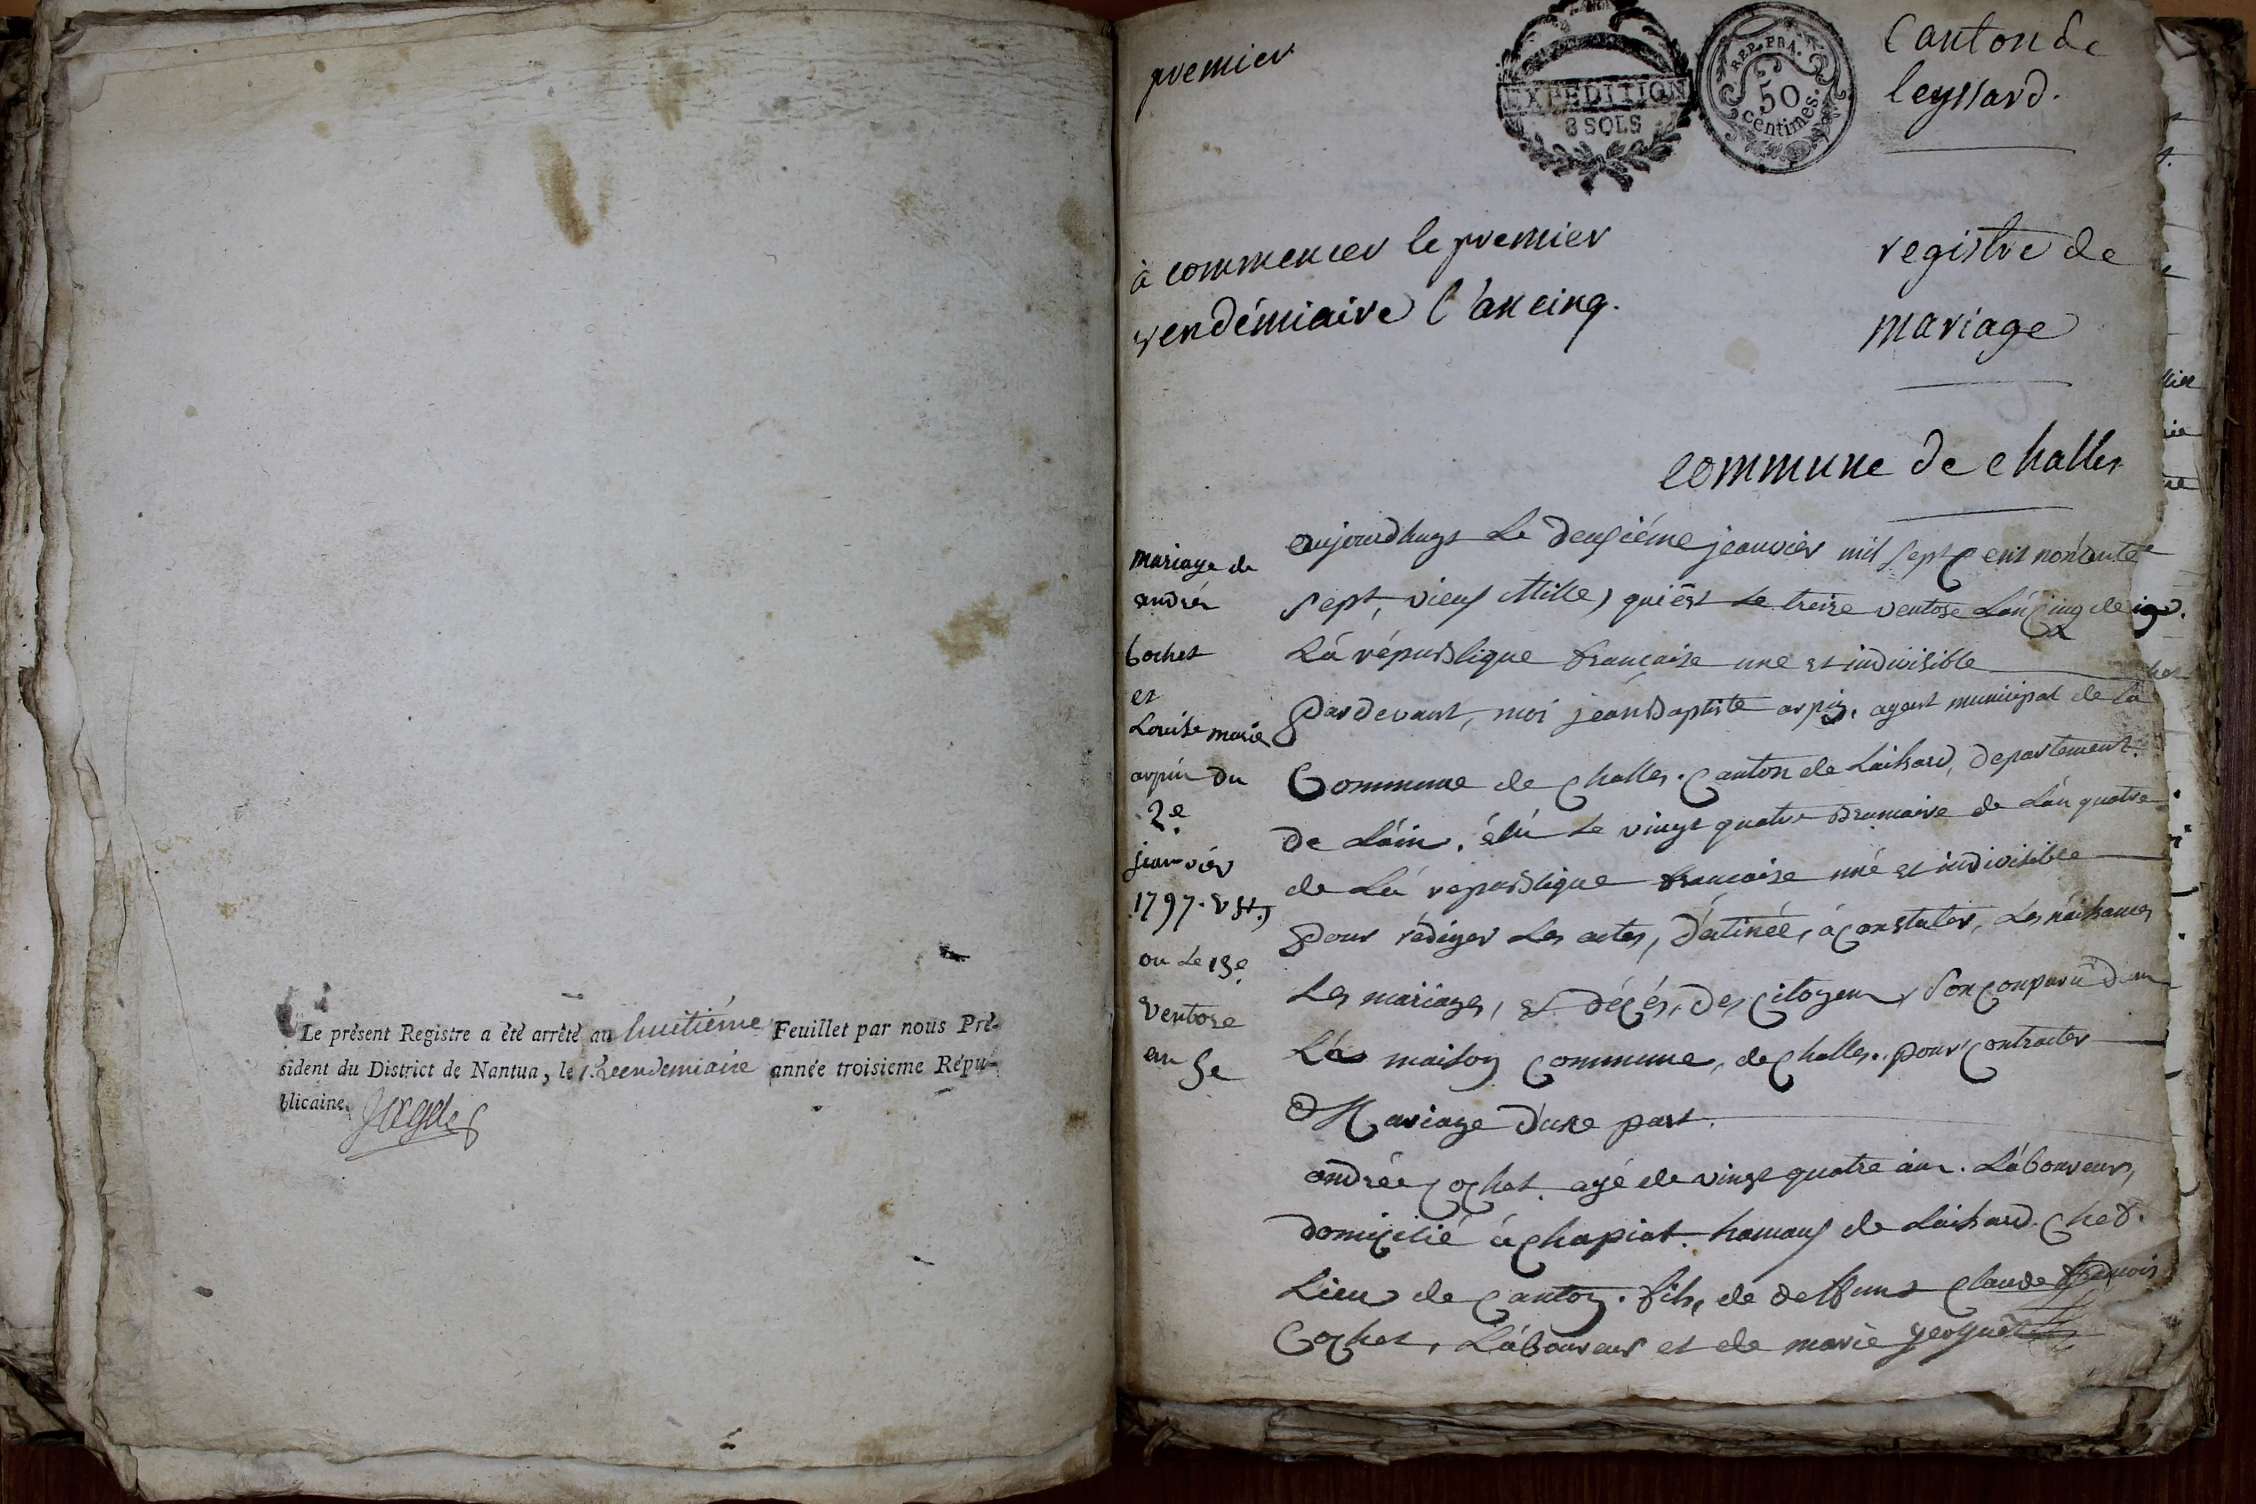 Le présent Registre a été arrêté au huitiéme Feuillet par nous Pré-
sident du District de Nantua, le vendemiaire année troisieme Répu-
blicaine.
premier
EXPEDITION
8 SOLS
REP. FRA.
50
centimes.
Canton de
leyssard.
à commencer le premier
vendémiaire l'an cinq.
registre de
mariage
commune de challes
mariage de
andréé
Cochet
et
Louise marie
arpin du
2e
jeanviér
1797. v st.
ou le 13e
ventose
an 5e
aujourdhuy le deuxiéme jeanvier mil sept cent nonante
sept, vieux stille, qui est le treize ventose l'an cinq de
la république francaise une et indivisible
Pardevant, moi jean Baptiste arpin, agent municipal de la
Commune de Challes. Canton de Laissard, departement
de L'ain. élû le vingt quatre Brumaire de l'an quatre
de la republique francaise une et indivisible
pour rédiger les actes, déstinée, à constater, les naissances
Les mariages, et décés, des Citoyens, son conparû dans
La maison Commune, de Challes. pour Contracter
Mariage d'une part.
andréé Cochet agé de vingt quatre ans. Laboureur,
domicilié à Chapiat hamaux de Laissard. Chef.
Lieu de Canton. fils, de deffunt Claude francois
Cochet, Laboureur et de marie